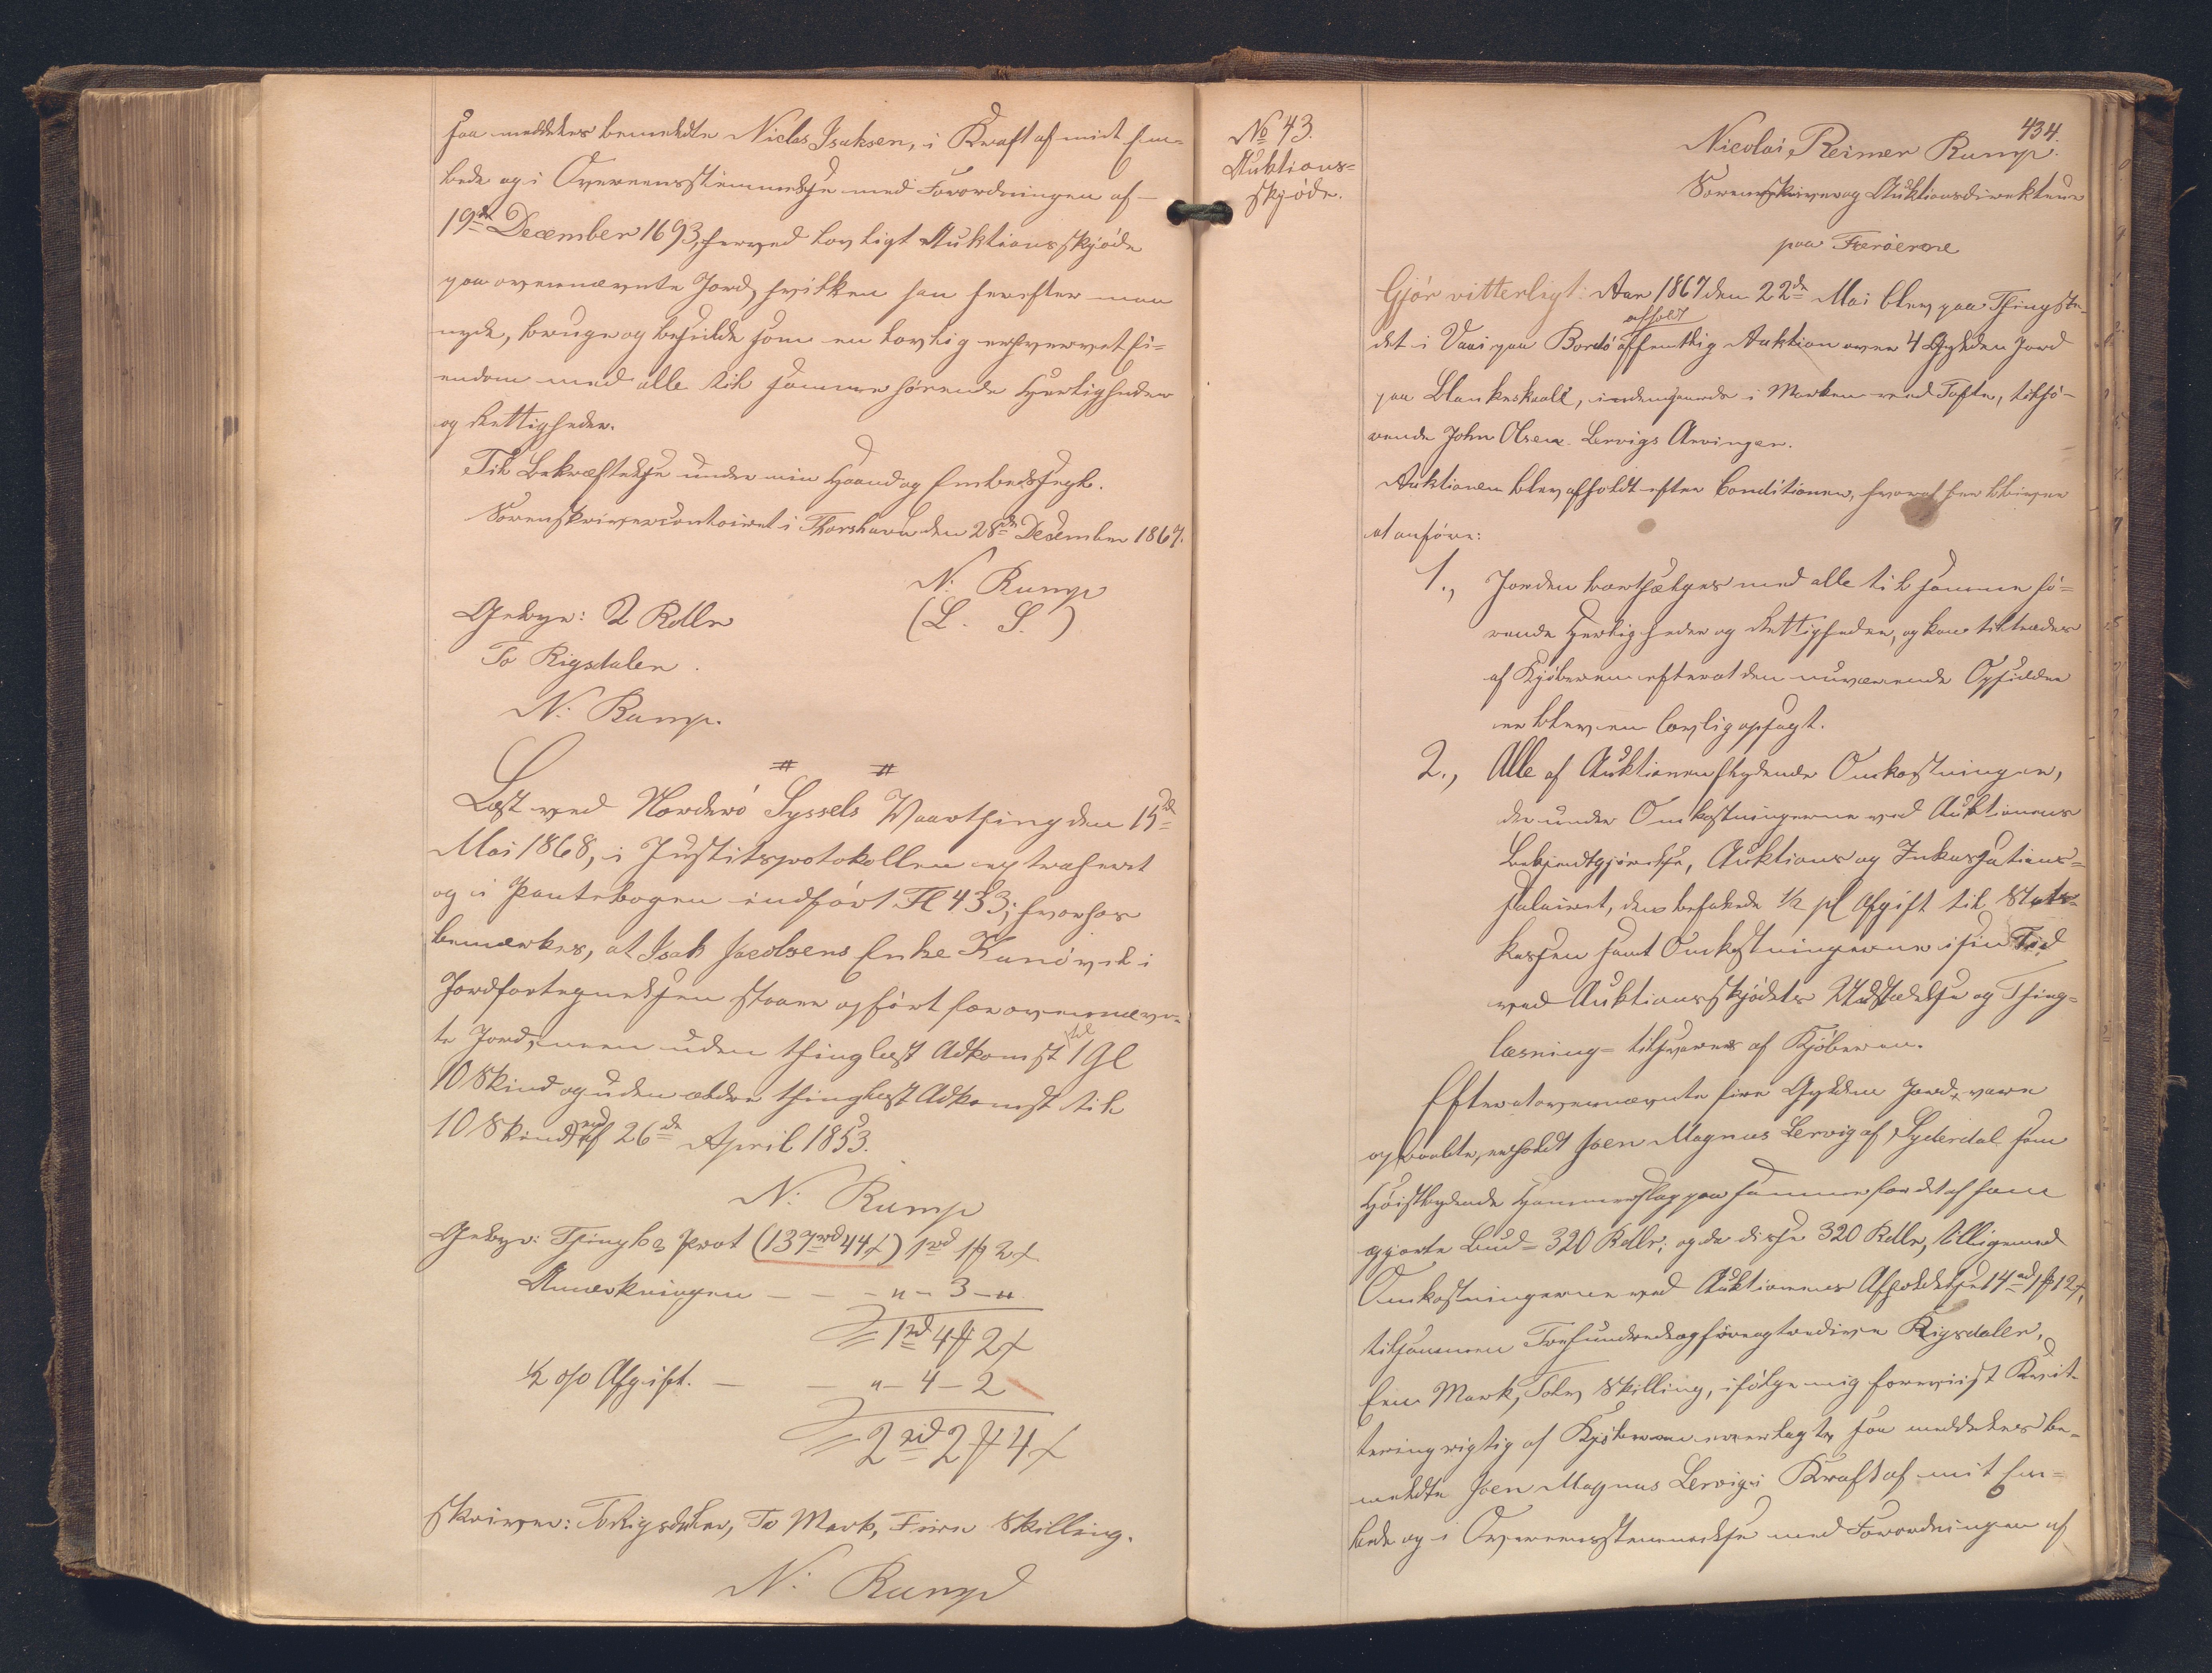 saa meddeles bemeldte Niclas Isaksen, i Kraft af mit Em-
bede og i Overeensstemmelse med Forordningen af
19de December 1693, herved lovligt Auktionsskjöde
paa ovennævnte Jord, hvilken han herefter maa
nyde, bruge og besidde som en lovlig erhvervet Ei-
endom med alle til samme hörende Herligheder
og Rettigheder.
Til Bekræftelse under min Haand og Embedssegl.
Sorenskrivercontoiret i Thorshavn den 28de December 1867.
N. Rump
(L. S.)
Gebyr: 2 Rdlr
To Rigsdaler.
N. Rump.
Læst ved Norderö Syssels Vaarthing den 15de
Mai 1868, i Justitsprotokollen extraheret
og i Pantebogen indfört Fl 433; hvorhos
bemærkes, at Isak Jacobsens Enke Kunövik i
Jordfortegnelsen staaer opfört for ovennævn-
te Jord, men uden thinglæst Adkomst til 1 Gl
10 Skind og uden ældre thinglæst Adkomst til
10 Skind end af 26de April 1853.
N. Rump
Gebyr: Thingl. & Prot (137rd 44ß) 1rd 1# 2ß
Anmærkningen - - - " - 3 - "
= 1rd 4# 2ß
½ o/o Afgift. - - " - 4 - 2
= 2rd 2# 4ß
skriver: To Rigsdaler, To Mark, Fire Skilling.
N. Rump
No 43.
Auktions=
skjöde.
434.
Nicolai Reimer Rump.
Sorenskriver og Auktionsdirekteur
paa Færöerne
Gjör vitterligt: Aar 1867 den 22de Mai blev paa Thingste-
det i Vaai paa Bordö afholdt offentlig Auktion over 4 Gylden Jord
paa Blankeskaale, indengaards i Marken ved Tofte, tilhö-
rende John Olsen Lervigs Arvinger.
Auktionen blev afholdt efter Conditioner, hvoraf her bliver
at anföre:
1., Jorden bortsælges med alle til samme hö=
rende Herligheder og Rettigheder, og kan tiltrædes
af Kjöberen efterat den nuværende Opsidder
er bleven lovlig opsagt.
2., Alle af Auktionen flydende Omkostninger,
derunder Omkostningerne ved Auktionens
Bekjendtgjörelse, Auktions og Inkassations=
salairet, den befalede ½ pC Afgift til Stats-
kassen samt Omkostningerne i sin Tid
ved Auktionsskjödets Udstædelse og Thing=
læsning = tilsvares af Kjöberen.
Efterat ovennævnte fire Gylden Jord, vare
opraabte, erholdt Joen Magnus Lervig af Syderdal som
Höistbydende Hammerslag paa samme for det af ham
gjorte Bud = 320 Rdlr; og da disse 320 Rdlr, tilligemed
Omkostningerne ved Auktionens Afholdelse 14rd 1# 12ß,
tilsammen Trehundrede og fire og tredive Rigsdaler,
Een Mark, Tolv Skilling, ifölge mig foreviist Kvit-
tering rigtig af Kjöberen ere erlagte, saa meddeles be-
meldte Joen Magnus Lervig i Kraft af mit Em=
bede og i Overeensstemmelse med Forordningen af